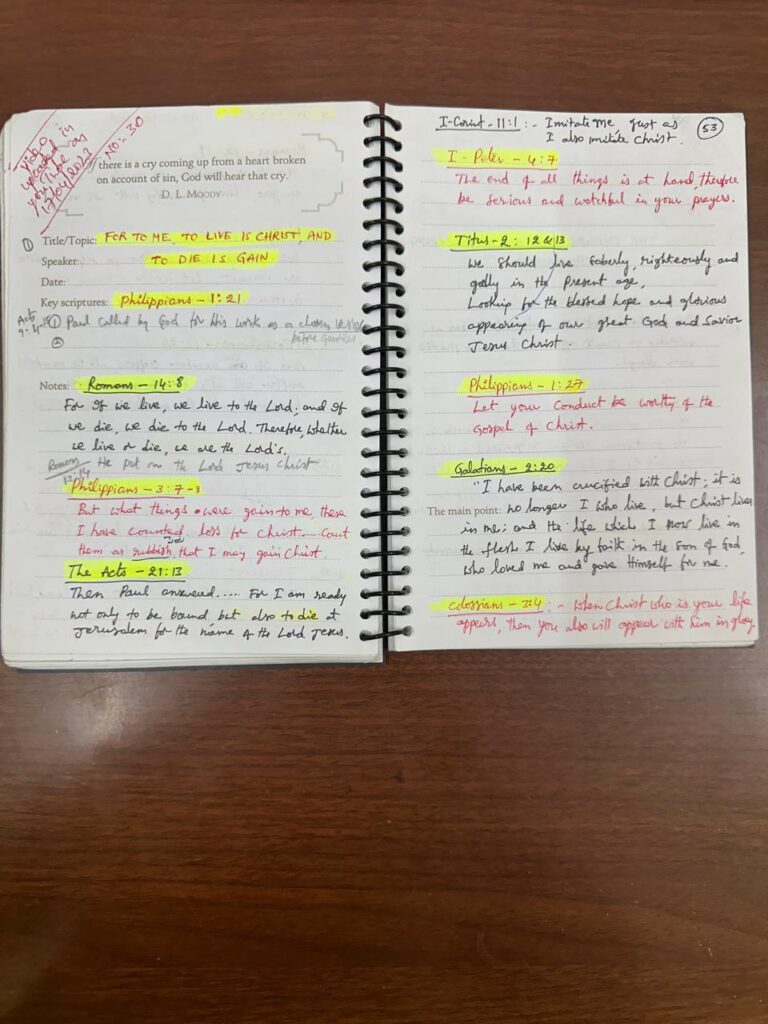 Video
uploaded in
youtube on
17/04/2023
NO:- 30
there is a cry coming up from a heart broken
on account of sin, God will hear that cry.
D. L. MOODY
① Title/Topic: FOR TO ME, TO LIVE IS CHRIST, AND
Speaker: TO DIE IS GAIN
Date:
Key scriptures: Philippians - 1:21
Acts
9:4-15
① Paul called by God for His work as a chosen vessel
before gentiles
②
Notes: Romans - 14:8
For If we live, we live to the Lord; and If
we die, we die to the Lord. Therefore, whether
we live or die, we are the Lord's.
Romans
13:14
He put on the Lord Jesus Christ
Philippians - 3:7-8
But what things were gain to me, these
I have counted loss for Christ... Count
them as rubbish, that I may gain Christ.
The Acts - 21:13
Then Paul answered.... For I am ready
not only to be bound but also to die at
Jerusalem for the name of the Lord Jesus.
I-Corint - 11:1 :- Imitate Me just as
I also imitate Christ.
53
I - Peter - 4:7
The end of all things is at hand, therefore
be serious and watchful in your prayers.
Titus - 2: 12 & 13
We should live soberly, righteously and
godly in the present age,
Looking for the blessed hope and glorious
appearing of our great God and Savior
Jesus Christ.
Philippians - 1:27
Let your conduct be worthy of the
Gospel of Christ.
Galatians - 2:20
"I have been crucified with Christ; it is
The main point: no longer I who live, but Christ lives
in me; and the life which I now live in
the flesh I live by faith in the Son of God,
who loved me and gave Himself for me.
Colossians - 3:4 :- When Christ who is your life
appears, then you also will appear with him in glory.